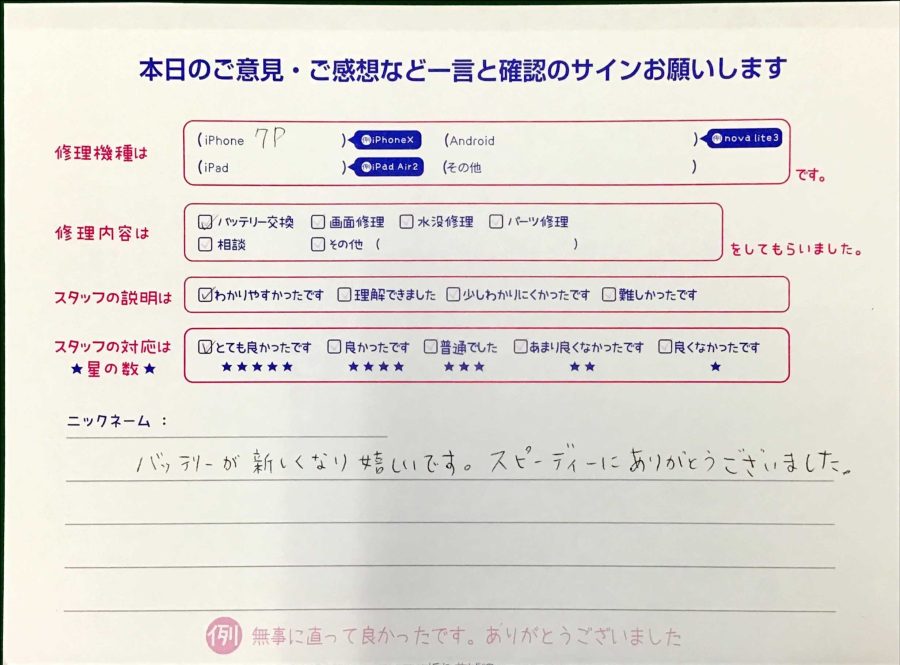 本日のご意見・ご感想など一言と確認のサインお願いします
修理機種は
(iPhone 7P ) 例iPhoneX (Android ) 例nova lite3
(iPad ) 例iPad Air2 (その他 )
です。
修理内容は
バッテリー交換 画面修理 水没修理 パーツ修理
相談 その他 ( )
をしてもらいました。
スタッフの説明は
わかりやすかったです 理解できました 少しわかりにくかったです 難しかったです
スタッフの対応は
★星の数★
とても良かったです 良かったです 普通でした あまり良くなかったです 良くなかったです
★★★★★ ★★★★ ★★★ ★★ ★
ニックネーム：
バッテリーが新しくなり嬉しいです。スピーディーにありがとうございました。
例 無事に直って良かったです。ありがとうございました